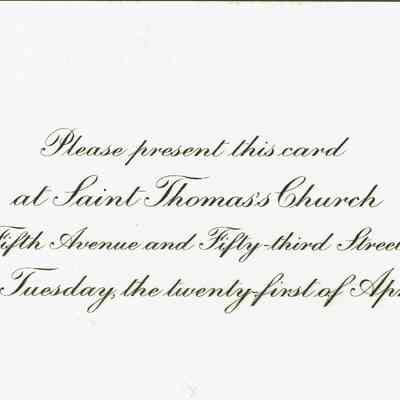 Please present this card
at Saint Thomas's Church
Fifth Avenue and Fifty-third Stree
Tuesday, the twenty-first of Ap